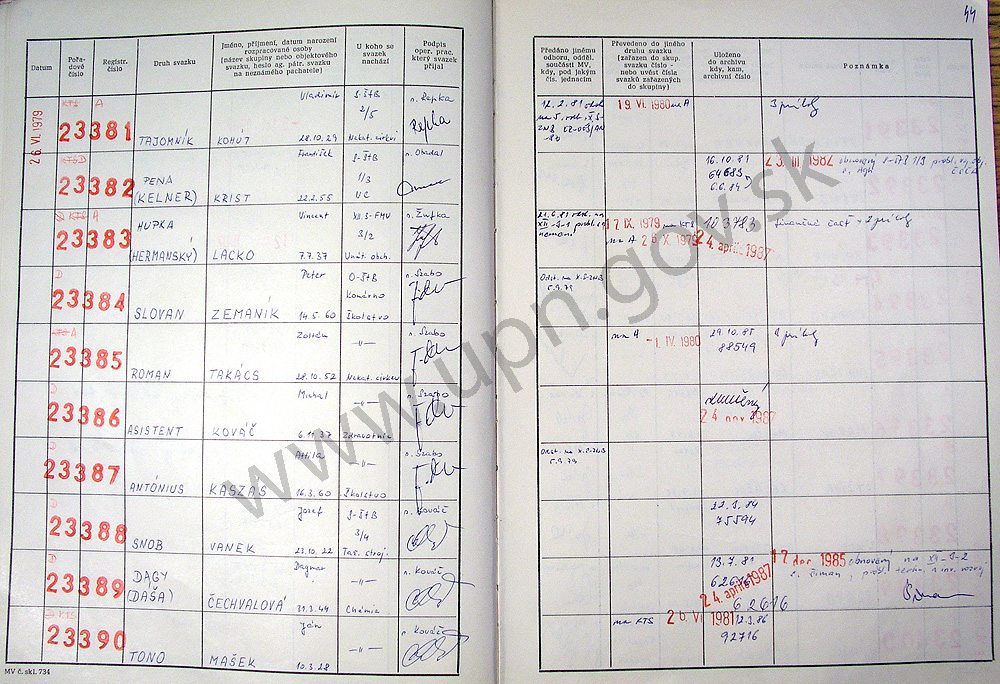 44
Datum
Pořa-
dové
číslo
Registr.
číslo
Druh svazku
Jméno, příjmení, datum narození
rozpracované osoby
(název skupiny nebo objektového
svazku, heslo ag. pátr. svazku
na neznámého pachatele)
U koho se
svazek
nachází
Podpis
oper. prac.
který svazek
přijal
Předáno jinému
odboru, odděl.
součásti MV,
kdy, pod jakým
čís. jednacím
Převedeno do jiného
druhu svazku
(zařazen do skup.
svazku číslo -
nebo uvést čísla
svazků zařazených
do skupiny)
Uloženo
do archivu
kdy, kam,
archivní číslo
Poznámka
26 VI. 1979
KTS A
23381
TAJOMNÍK
Vladimír
KOHÚT
28.10.29
S-ŠtB
2/5
Nakat. cirkvi
n. Repka
19 VI. 1980 na A
3 prílohy
23382
PENA
(KELNER)
František
KRIST
22.2.55
S-ŠtB
1/3
VC
n. Obadal
16.10.81
64683
23 III 1982
KTS A
23383
HUPKA
(HERMANSKÝ)
Vincent
LACKO
7.7.37
XII. S-FMV
3/2
Vnút. obch.
n. Župka
17 IX. 1979 na KTS
na A 26 X 1979
103783
24. apríla 1987
finančné časť + 2 prílohy
D
23384
SLOVAN
Peter
ZEMANÍK
14.5.60
O-ŠtB
Komárno
Školstvo
n. Szabo
Odst. na X.S-ZNB
5.9.79
A
23385
ROMAN
Zoltán
TAKÁCS
28.10.52
-"-
Nakat. cirkev
n. Szabo
na A
-1. IV. 1980
29.10.85
88549
2 prílohy
D
23386
ASISTENT
Michal
KOVÁČ
6.11.37
-"-
Zdravotníc
n. Szabo
zničený
24 nov 1987
D
23387
ANTÓNIUS
Attila
KASZAS
16.3.60
-"-
Školstvo
n. Szabo
Odst. na X.S-ZNB
5.9.79
D
23388
SNOB
Jozef
VANEK
23.10.22
S-ŠtB
3/4
Ťaž. stroj.
n. Kováč
22.3.84
75594
D
23389
DAGY
(DAŠA)
Dagmar
ČECHVALOVÁ
31.3.44
-"-
Chémia
n. Kováč
13.7.81
62616
24. apríla 1987
62616
17 dec 1985
D KTS
23390
TONO
Ján
MAŠEK
10.3.28
-"-
n. Kováč
na KTS
26 VI 1981
12.3.86
92716
MV č. skl. 734
www.upn.gov.sk